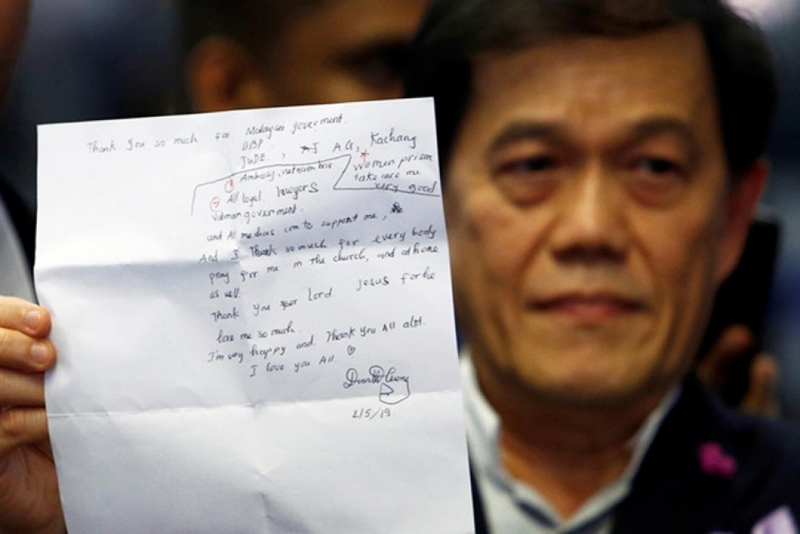 Thank You so much for Malaysian goverment.
DPP
JUDE, AG, Kachang
women prison
Ambasy, vietnam
take care me
very good
All loyal lawyers
vietnam government.
and All medias com to support me,
And I Thank so much for every body
pray for me in the church, and at home
as well.
Thank You Lord Jesus for he
love me so much.
I'm very happy and. Thank You All alot.
I love you All. ♡
2/5/19